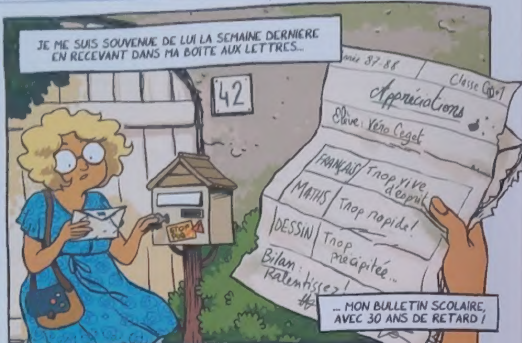 JE ME SUIS SOUVENUE DE LUI LA SEMAINE DERNIÈRE
EN RECEVANT DANS MA BOITE AUX LETTRES...
42
87-88
Classe
Appréciations
Élève : Véro Cazot
FRANÇAIS Trop vive
d'esprit
MATHS Trop rapide !
DESSIN Trop
précipitée...
Bilan :
Ralentissez !
... MON BULLETIN SCOLAIRE,
AVEC 30 ANS DE RETARD !